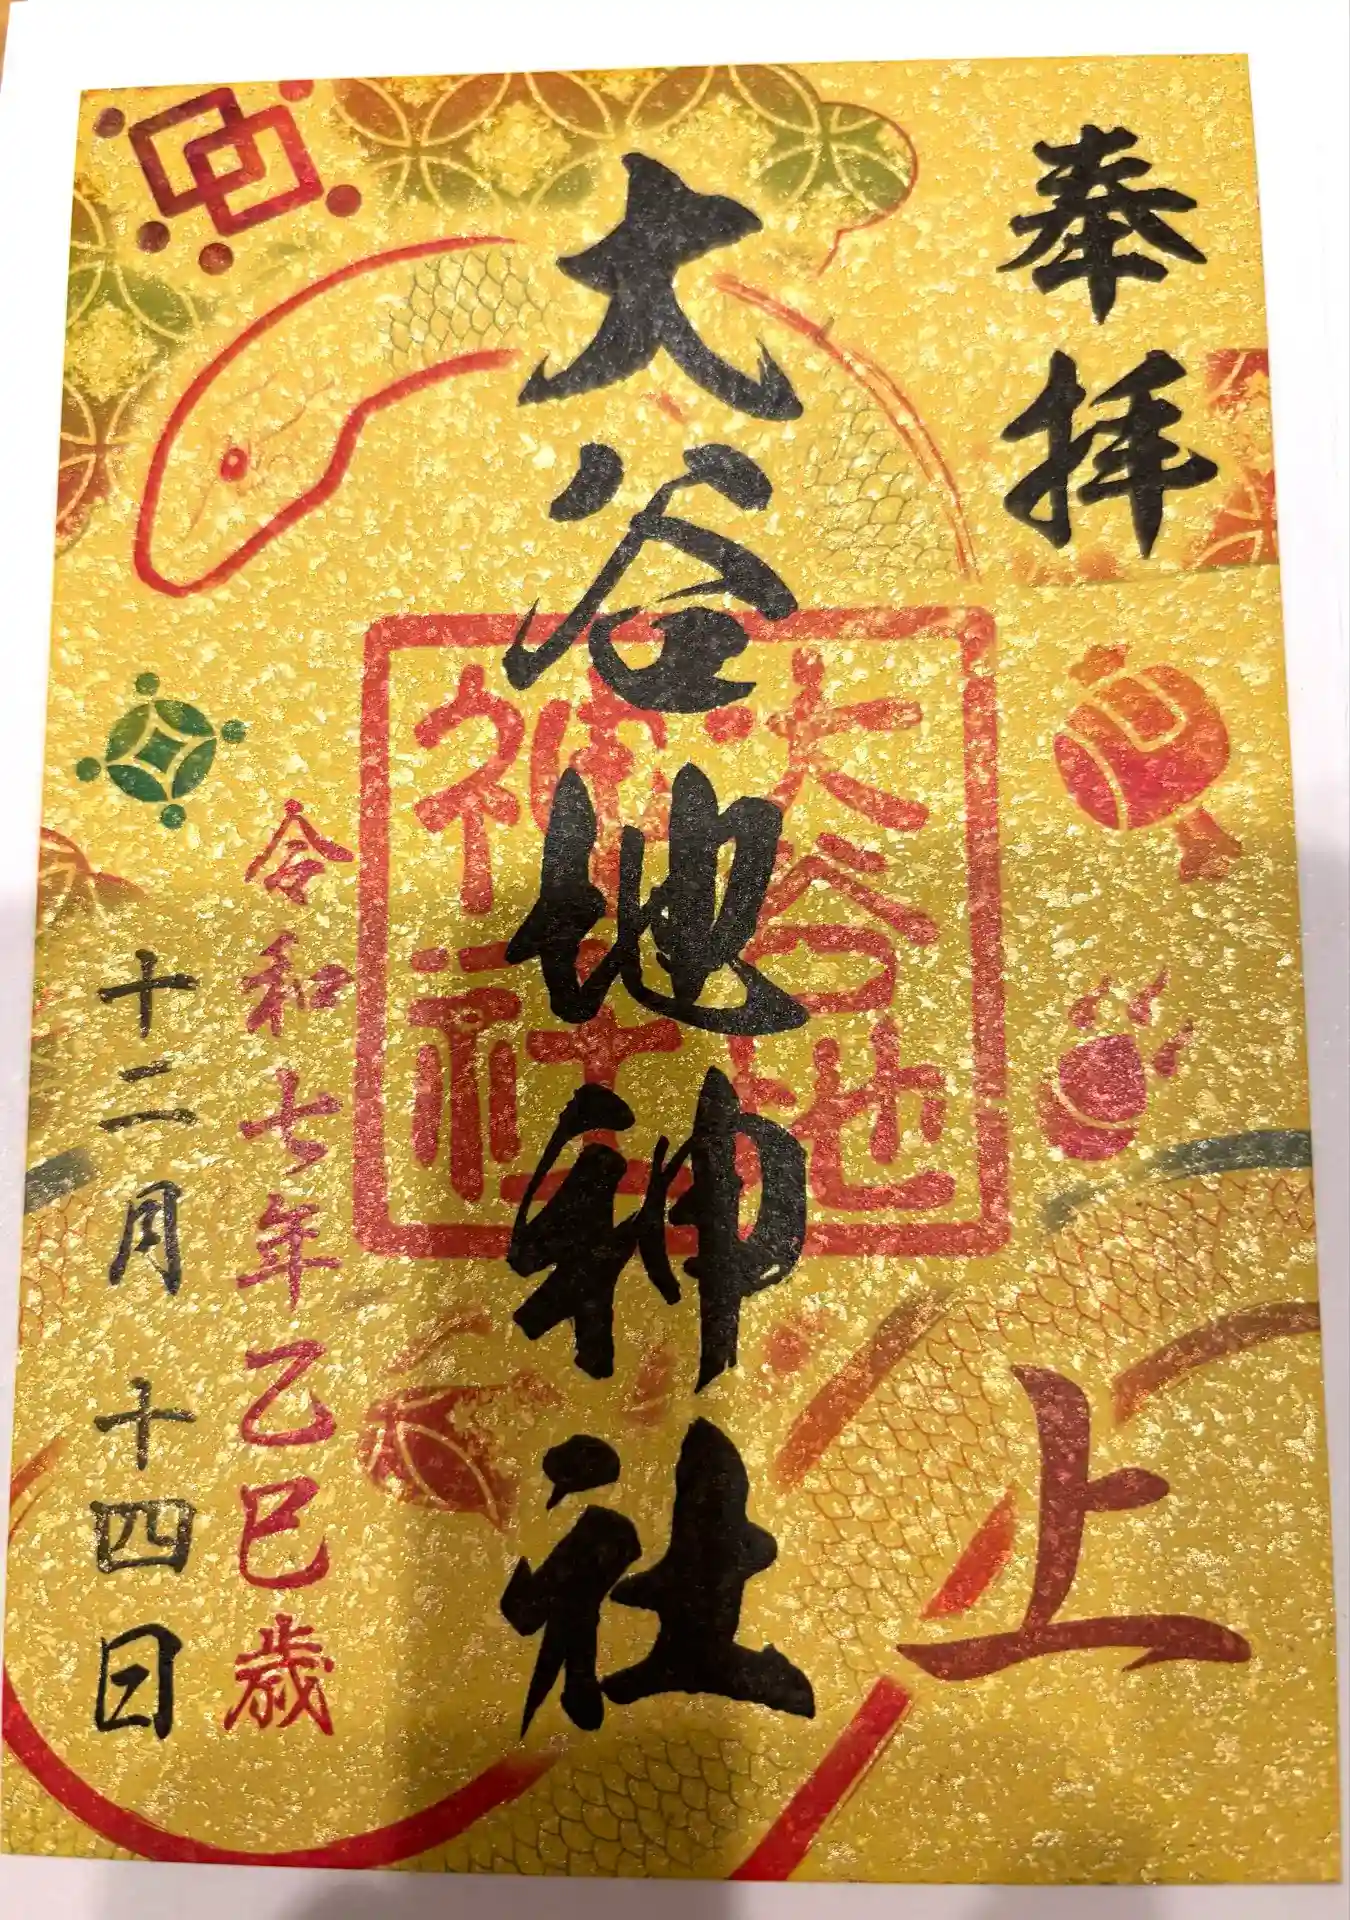 奉拝
上
大谷地神社
大谷地
神社
令和七年乙巳歳
十二月十四日